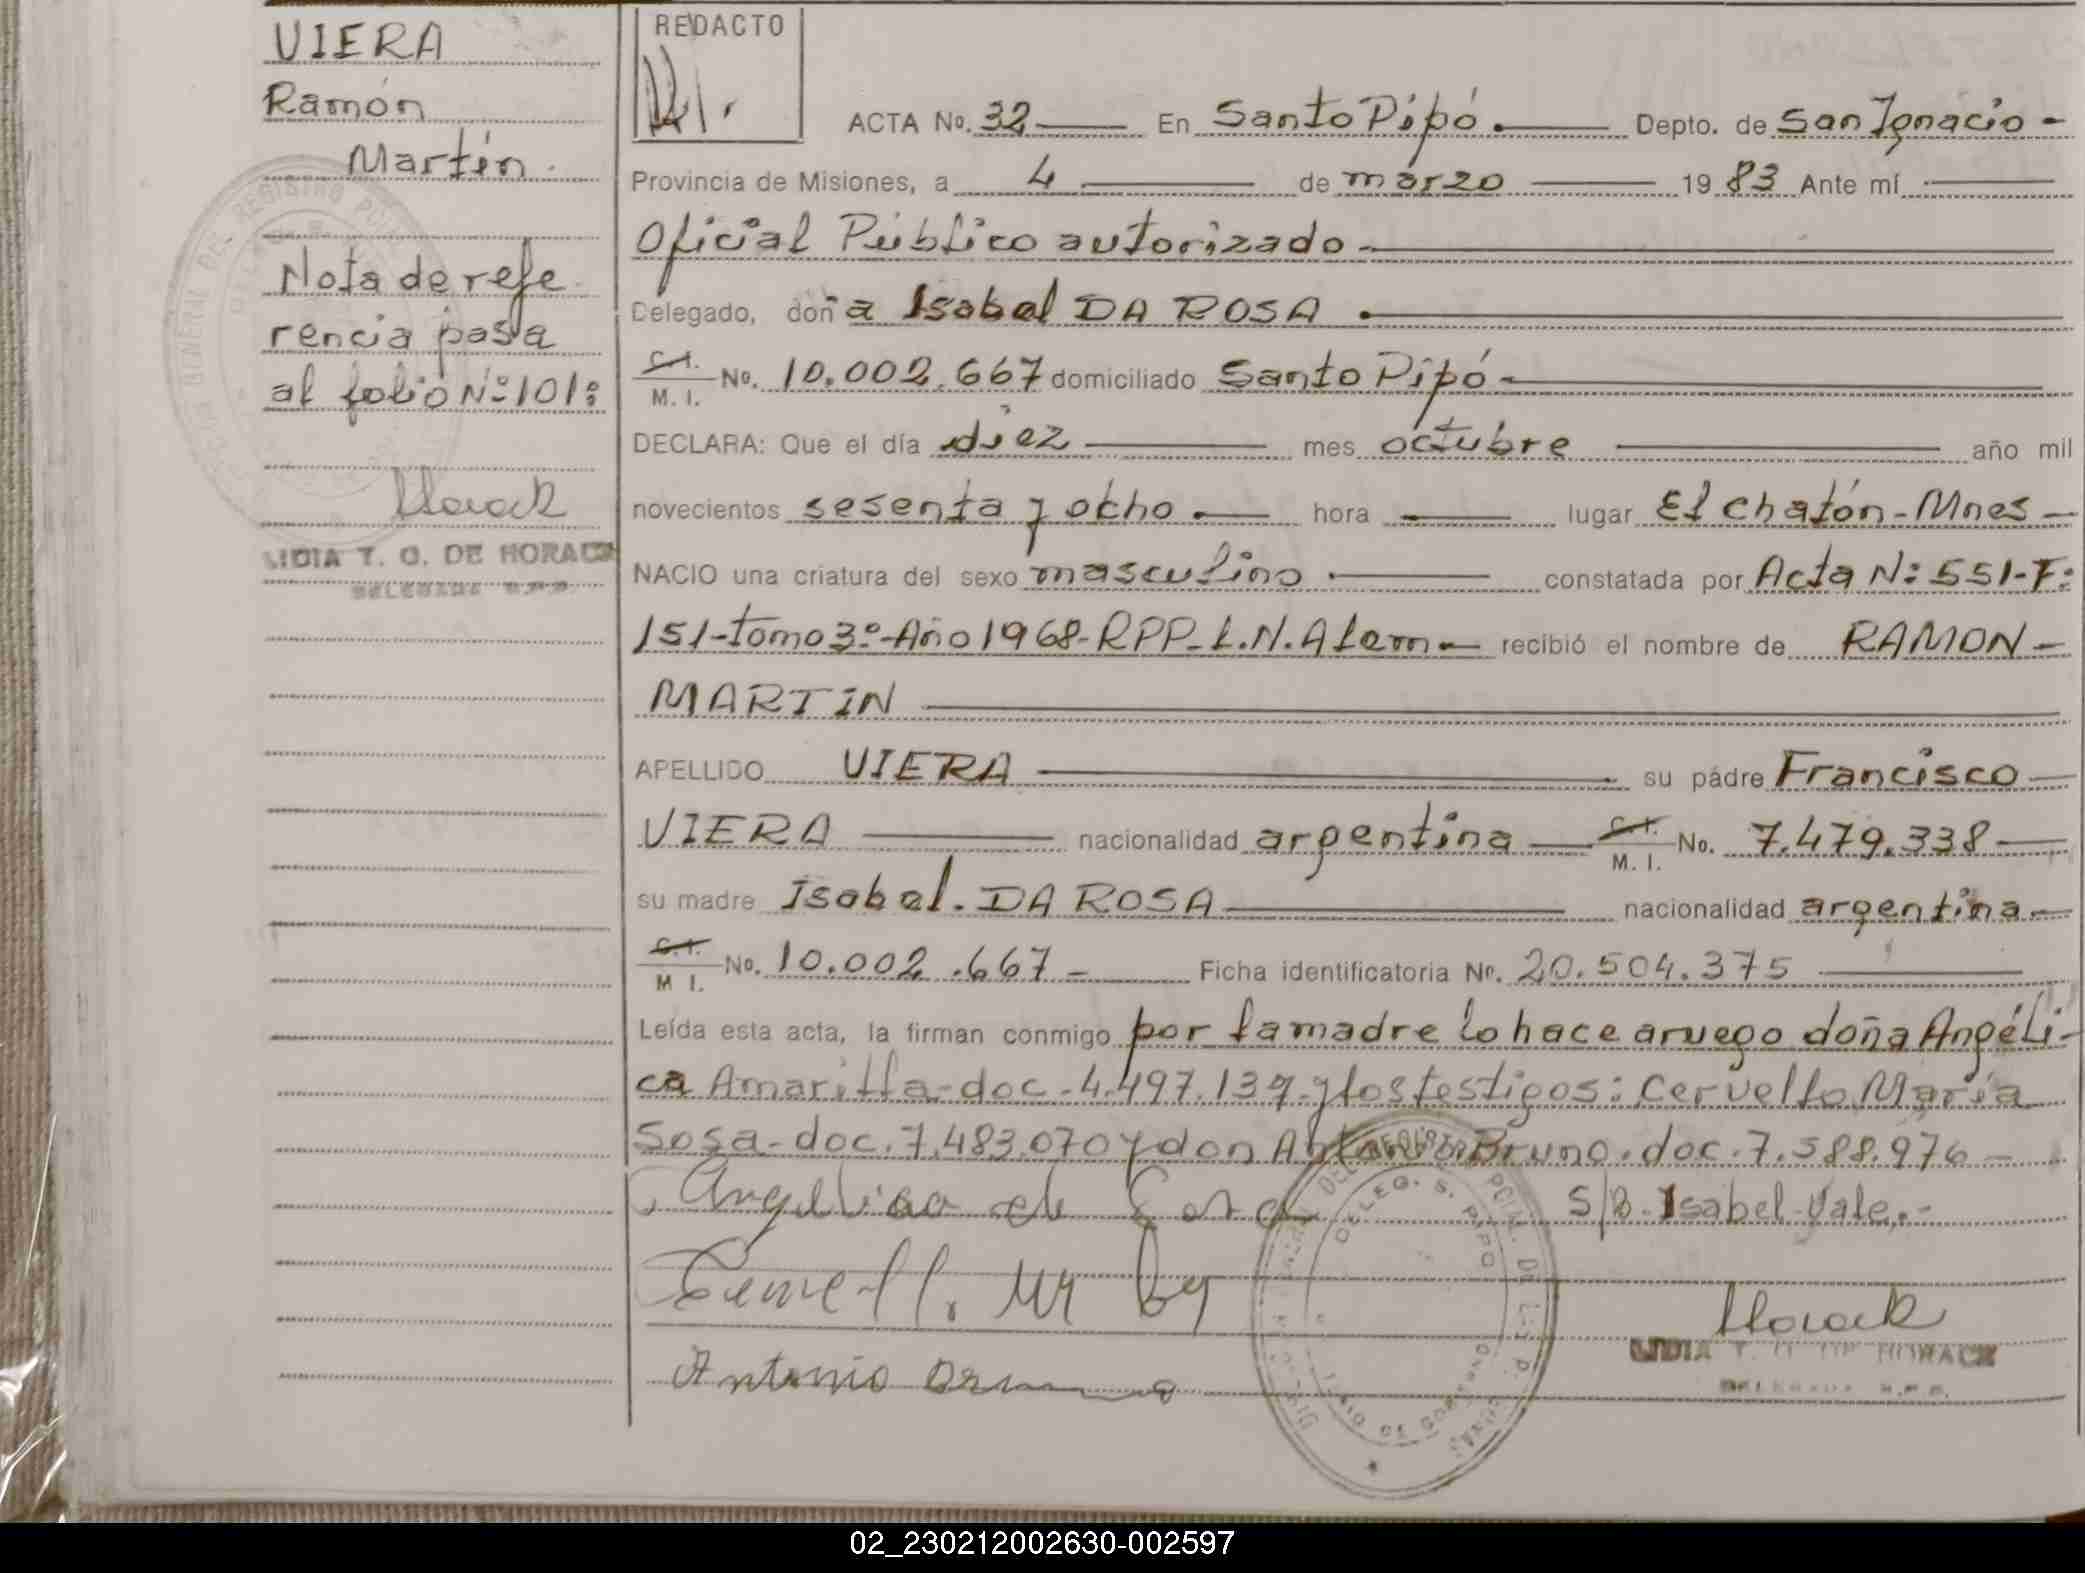 VIERA
Ramón
Martín.
Nota de refe
rencia pasa
al folio Nº 101:
Horack
LIDIA T. O. DE HORACK
DELEGADA R.P.P.
REDACTO
ACTA No. 32 En Santo Pipó. Depto. de San Ignacio -
Provincia de Misiones, a 4 de marzo 1983 Ante mí
Oficial Público autorizado
Delegado, doña Isabel DA ROSA
C.I. / M. I. No. 10.002.667 domiciliado Santo Pipó
DECLARA: Que el día diez mes octubre año mil
novecientos sesenta y ocho hora lugar El Chatón - Mnes
NACIO una criatura del sexo masculino constatada por Acta Nº: 551-F:
151-Tomo 3º-Año 1968-RPP-L.N.Alem recibió el nombre de RAMON
MARTIN
APELLIDO VIERA su padre Francisco
VIERA nacionalidad argentina C.I. / M. I. No. 7.479.338
su madre Isabel. DA ROSA nacionalidad argentina
C.I. / M I. No. 10.002.667 Ficha identificatoria No. 20.504.375
Leída esta acta, la firman conmigo por la madre lo hace a ruego doña Angéli-
ca Amarilla-doc-4.497.139 y los testigos: Cervello María
Sosa-doc.7.483.070 y don Antonio Bruno.doc.7.588.976
Angelica de Sosa
S/B. Isabel-Vale.-
DELEG. S. PIPO
Horack
Antonio
LIDIA T. O. DE HORACK
DELEGADA R.P.P.
02_230212002630-002597